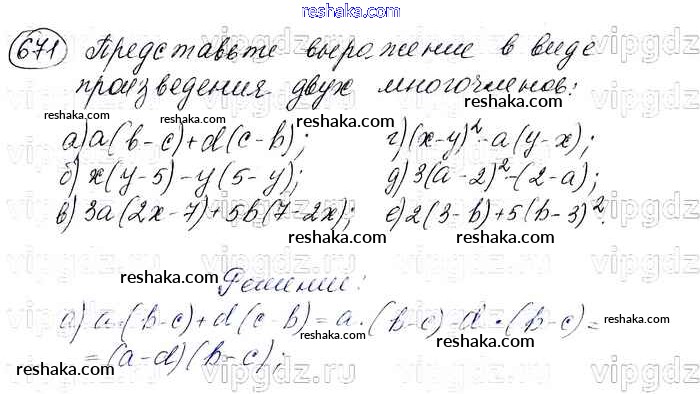 reshaka.com
671 Представьте выражение в виде
произведения двух многочленов:
reshaka.com
reshaka.com
а) a(b-c)+d(c-b); г) (x-y)²-a(y-x);
б) x(y-5)-y(5-y); д) 3(a-2)²-(2-a);
в) 3a(2x-7)+5b(7-2x); е) 2(3-b)+5(b-3)².
reshaka.com
reshaka.com
reshaka.com
reshaka.com
Решение:
а) a·(b-c)+d(c-b)=a·(b-c)-d·(b-c)=
reshaka.com
=(a-d)(b-c);
reshaka.com
reshaka.com
vipgdz